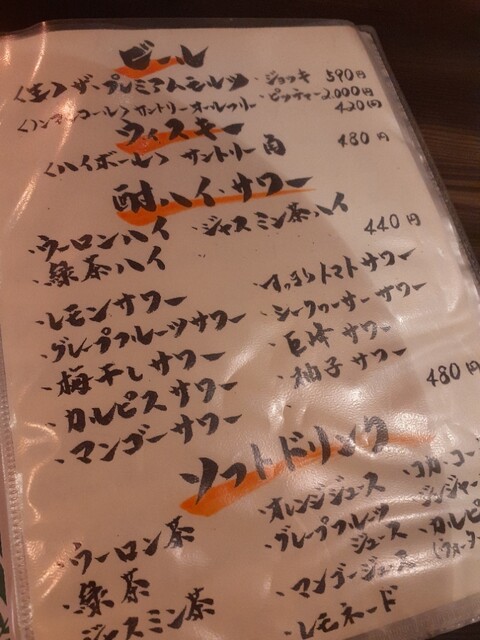 ビール
〈生〉ザ・プレミアムモルツ・ジョッキ 590円
・ピッチャー 2,000円
〈ノンアルコール〉サントリーオールフリー 420円
ウィスキー
〈ハイボール〉サントリー角 480円
酎ハイ・サワー
・ウーロンハイ ・ジャスミン茶ハイ 440円
・緑茶ハイ
・レモンサワー すっきりトマトサワー
・グレープフルーツサワー ・シークヮーサーサワー
・梅干しサワー 巨峰サワー
・カルピスサワー ・柚子サワー
・マンゴーサワー 480円
ソフトドリンク
・ウーロン茶 ・オレンジジュース ・コカ・コー
・緑茶 ・グレープフルーツジュース ジンジャー
・ジャスミン茶 ・マンゴージュース カルピ
・レモネード (ウォーター